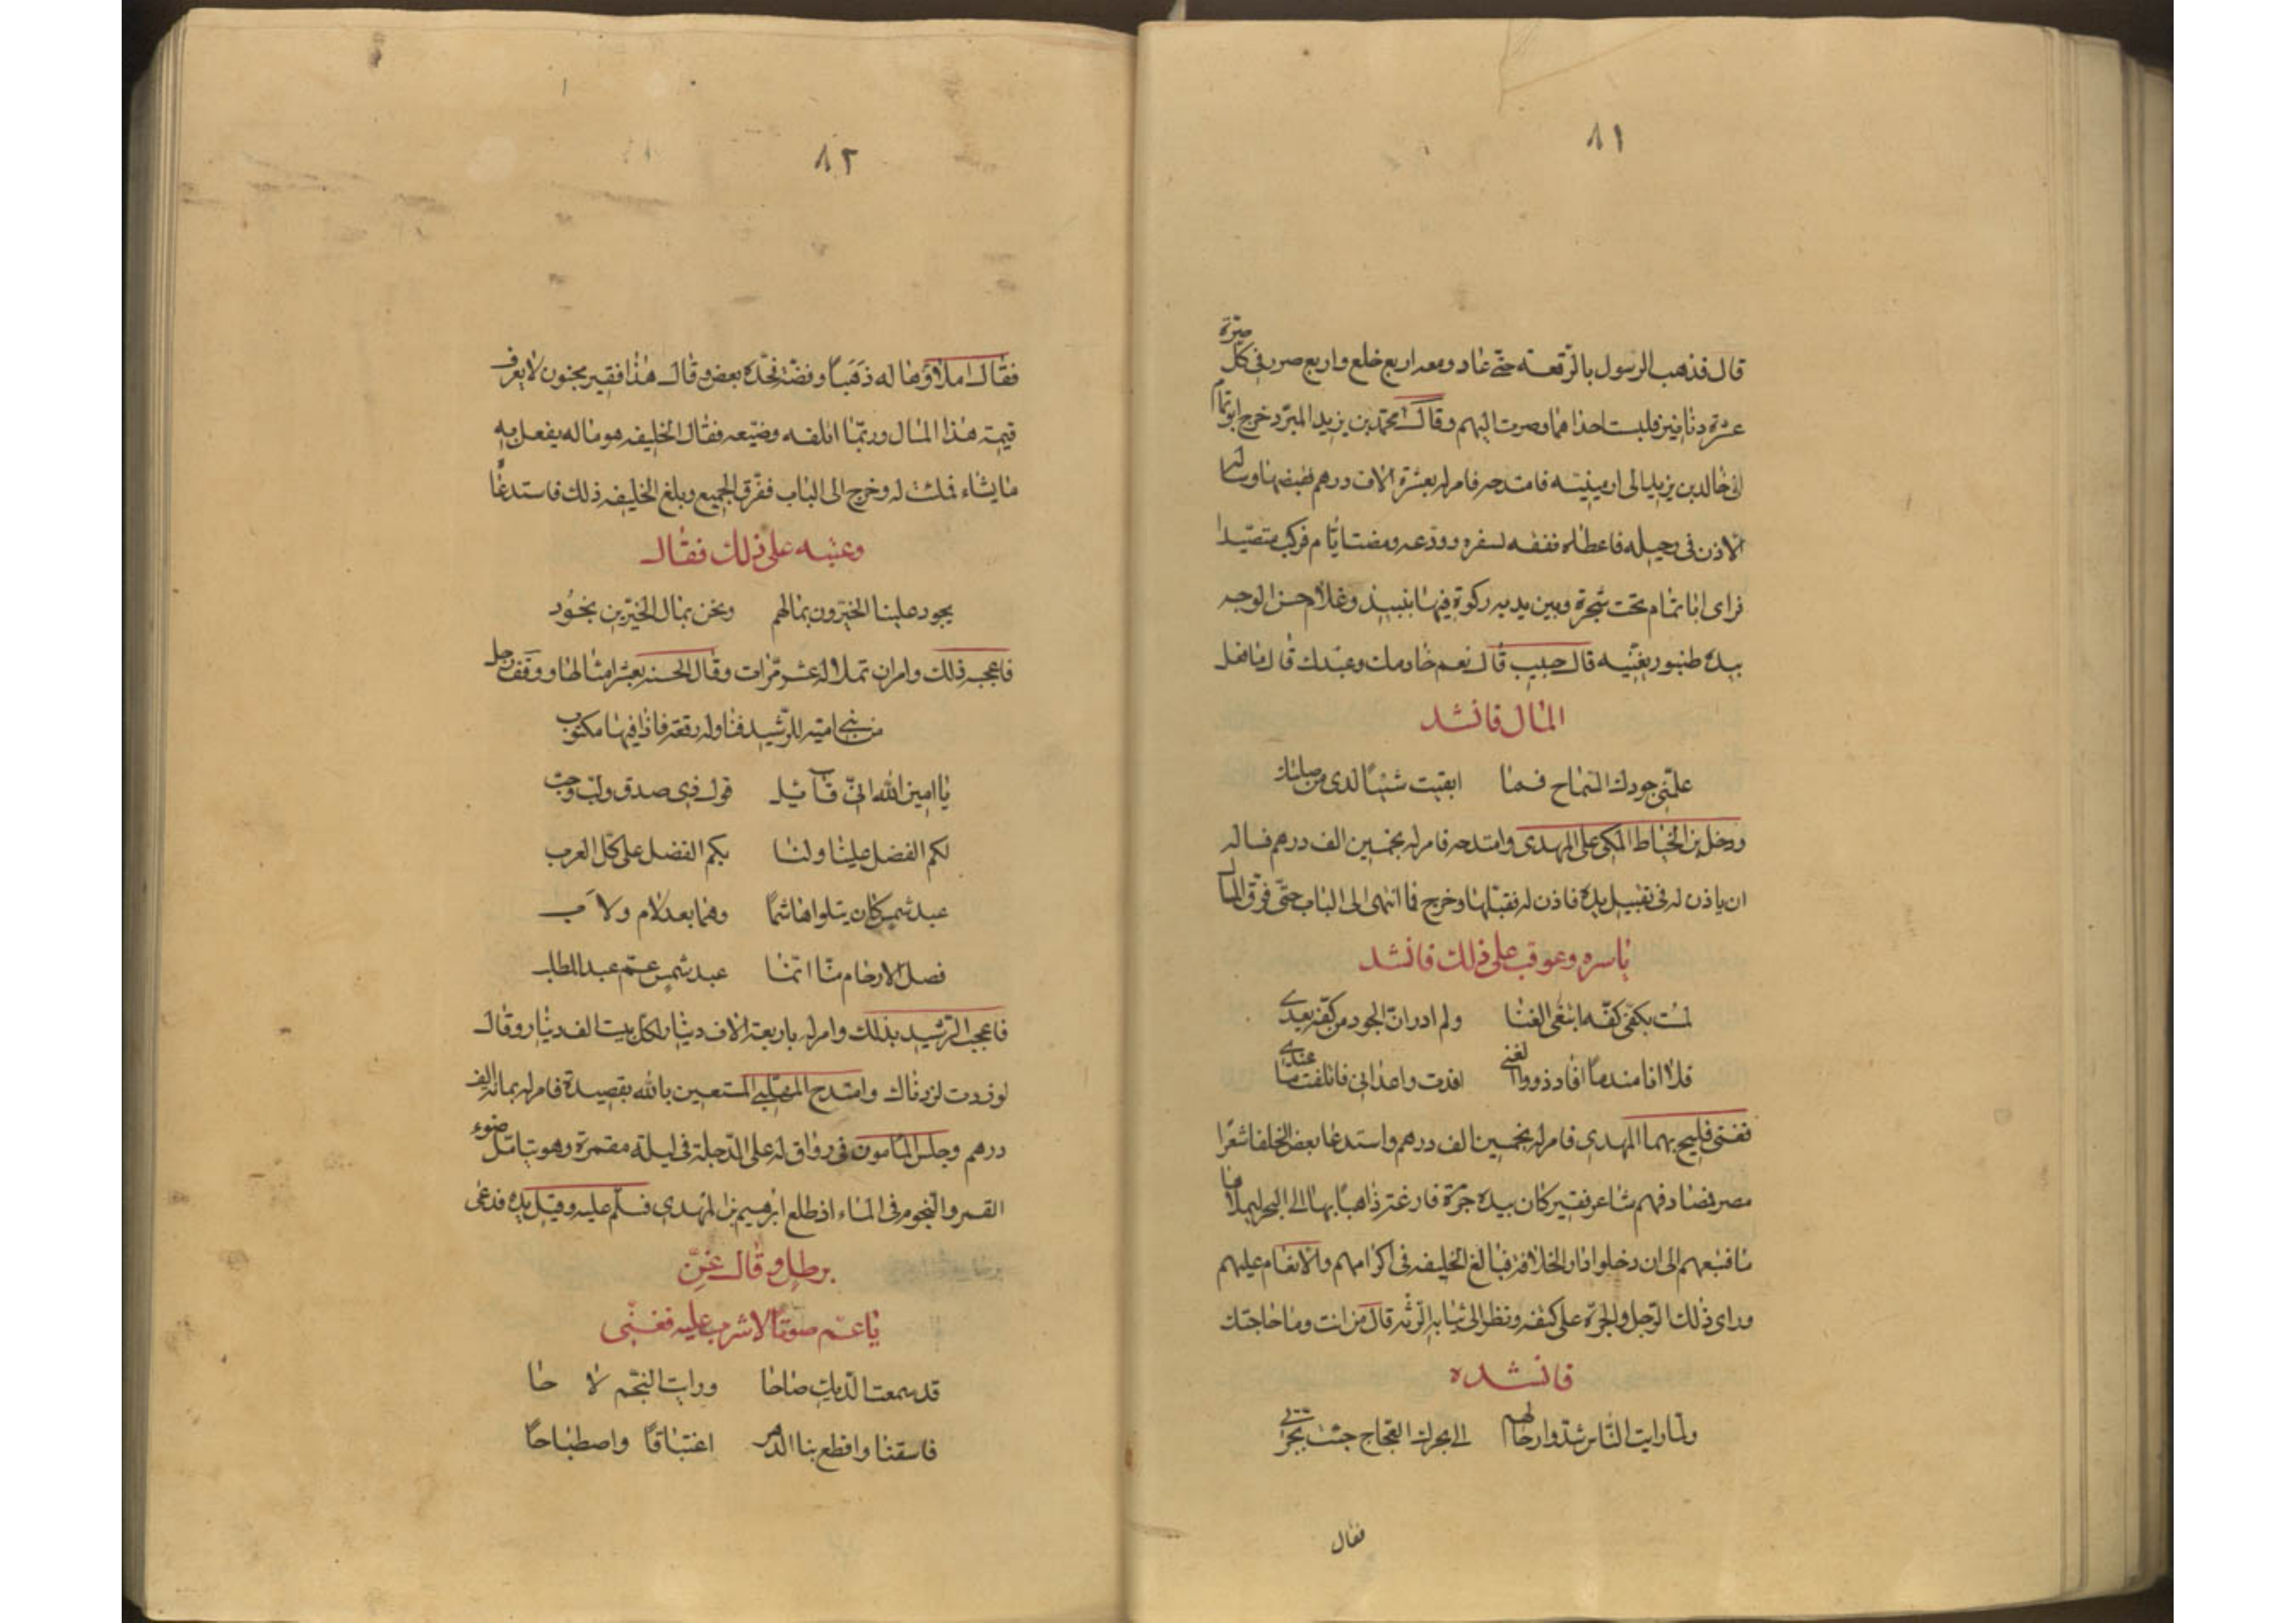 ٨١
قال فذهب الرسول بالرّقعته حتّى عاد ومعه اربع خلع واربع صرر فى كلّ صرّة
عشرة دنانير فلبست احداهما وصرت اليهم وقال محمّد بن يزيد المبرّد خرج ابو تمّام
الى خالد بن يزيد الى ارمينيته فامتدحه فامر له بعشرة الاف درهم فقبضها وساله
الاذن فى رحيله فاعطاه نفقه لسفره وودّعه ومضت ايّام فركب متصيّدا
فراى ابا تمام تحت شجرة وبين يديه ركوة فيها نبيذ وغلام حسن الوجه
بيده طنبور يغنّيه قال حبيب قال نعم خادمك وعبدك قال ما فعل
المال فانشد
علّمنى جودك السّماح فما ابقيت شيئًا لدى من صلتك
ودخل بن الخيّاط المكى على المهدى وامتدحه فامر له بخمسين الف درهم فساله
ان ياذن له فى تقبيل يده فاذن له فقبّلها وخرج فما انتهى الى الباب حتّى فرّق المال
باسره وعوقب على ذلك فانشد
لمست بكفّى كفّه ابتغى الغنا ولم ادر انّ الجود من كفّه يعدى
فلا انا منه ما افاد ذووا الغنى افدت واعدانى فاتلفت ما عندى
فغنى فليح بهما المهدى فامر له بخمسين الف درهم واستدعا بعض الخلفا شعرا
مصر فصادفهم شاعر فقير كان بيده جرّة فارغة ذاهبًا بها الى البحر ليملاها
ما فتبعهم الى ان دخلوا دار الخلافة فبالغ الخليفه فى اكرامهم والانعام عليهم
وراى ذلك الرّجل والجرّة على كتفه ونظر الى ثيابه الرّثه قال من انت وما حاجتك
فانشده
ولمّا رايت النّاس شدّوا رحالهم الى بحرك العجاج جئت بجرّتى
فقال
٨٢
فقال املاؤها له ذهبًا وفضّة فحسّده بعض وقال هذا فقير مجنون لا يعرف
قيمة هذا المال وربّما اتلفه وضيّعه فقال الخليفه هو ماله يفعل به
ما يشاء فملئت له وخرج الى الباب ففرّق الجميع وبلغ الخليفه ذلك فاستدعا
وعتبه على ذلك فقال
يجود علينا الخيّرون بمالهم ونحن بمال الخيّرين نجود
فاعجبه ذلك وامر ان تملا له عشر مرّات وقال الحسنه بعشر امثالها ووقف رجل
من بنى اميّه للرّشيد فناوله رقعته فاذا فيها مكتوب
يا امين الله انّى قائل قول ذى صدق ولبّ وحسب
لكم الفضل علينا ولنا بكم الفضل على كلّ العرب
عبد شمس كان يتلوا هاشمًا وهما بعد لام ولاَب
فصل الارحام منّا انّما عبد شمس عمّ عبد المطلب
فاعجب الرّشيد بذلك وامر له باربعة الاف دينار لكل بيت الف دينار وقال
لو زدت لزدناك وامتدح المهلبى المستعين بالله بقصيدة فامر له بمائة الف
درهم وجلس المامون فى رواق له على الدّجلة فى ليلة مقمرة وهو يتامّل ضوء
القمر والنّجوم فى الماء اذ طلع ابرهيم بن المهدى فسلّم عليه وقبّل يده فدعى
برطل وقال غنّ
يا عمّ صوتًا لاشرب عليه فغنّى
قد سمعت الدّيك صاحا ورايت النّجم لاحا
فاسقنا واقطع بنا الدّهر اغتباقًا واصطباحًا